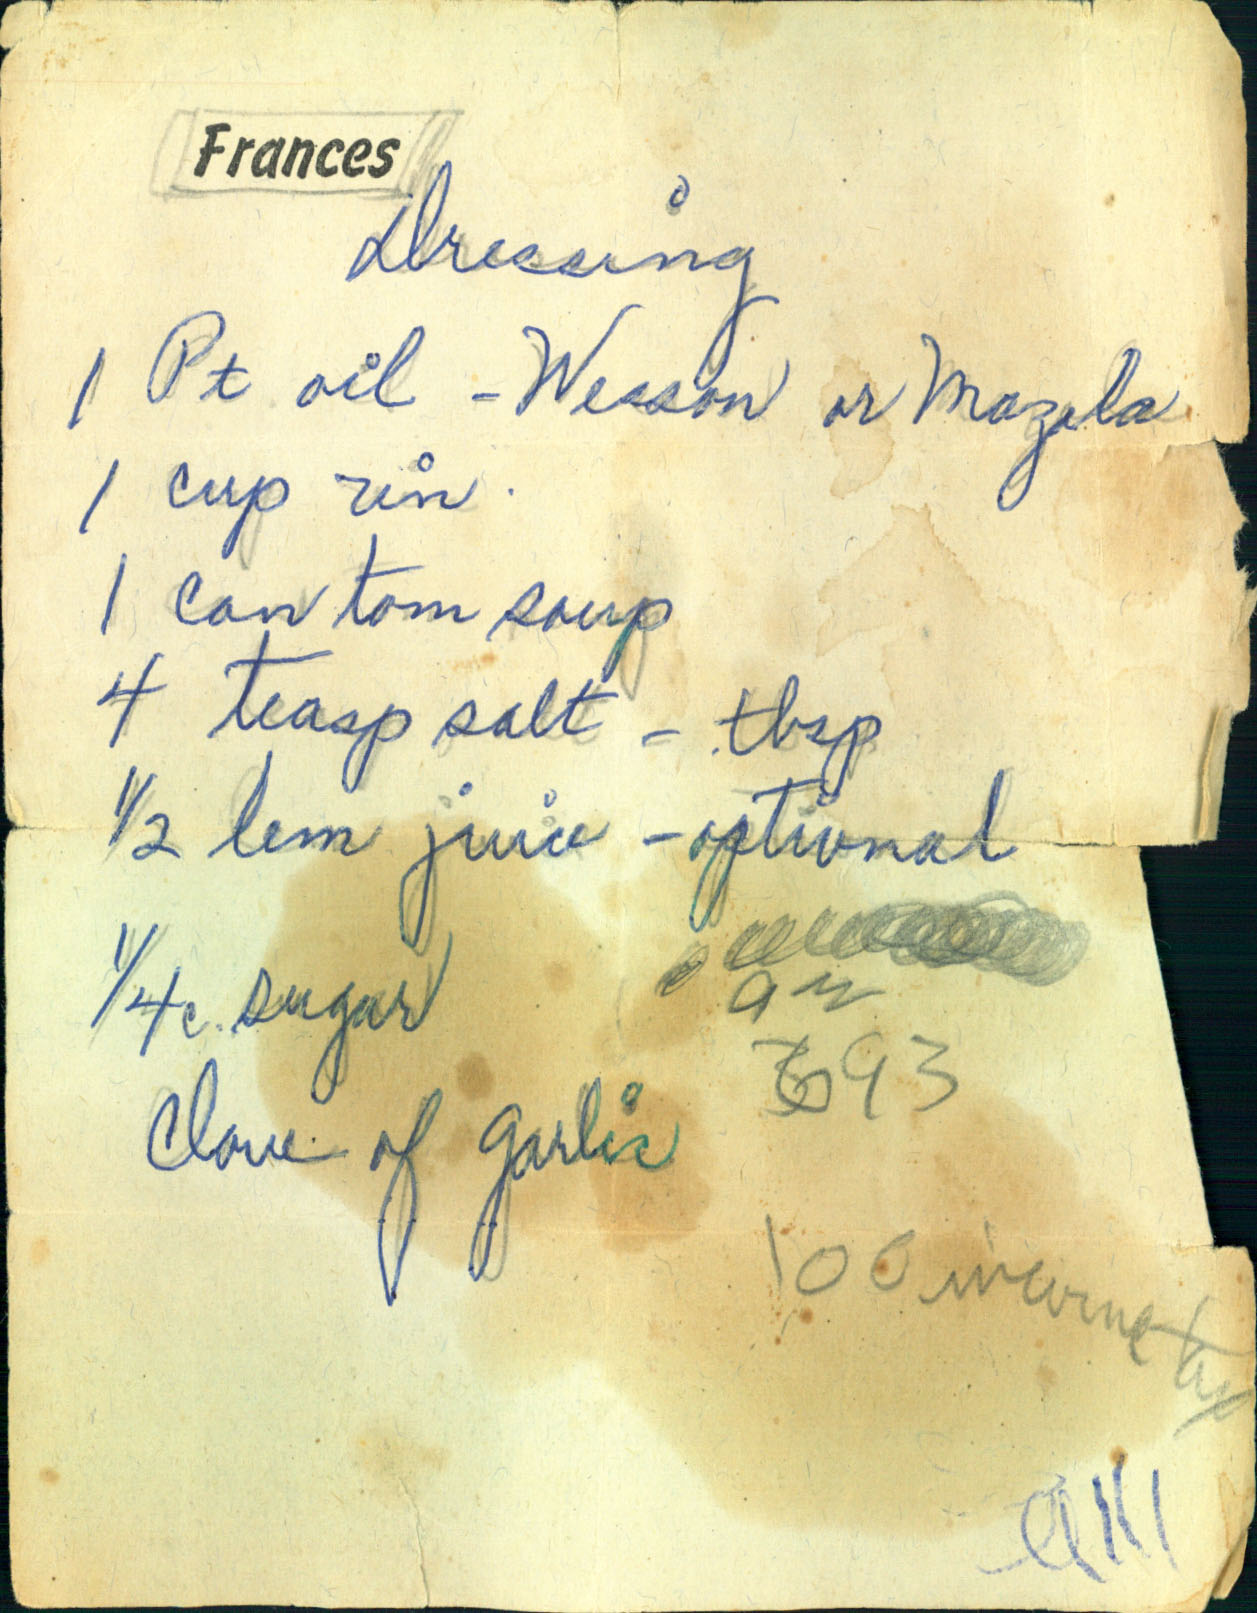 Frances
Dressing
1 Pt oil - Wesson or Mazola
1 cup vin.
1 can tom soup
4 teasp salt - tbsp
1/2 lem juice - optional
1/4 c. sugar
Clove of garlic
693
100 income tax